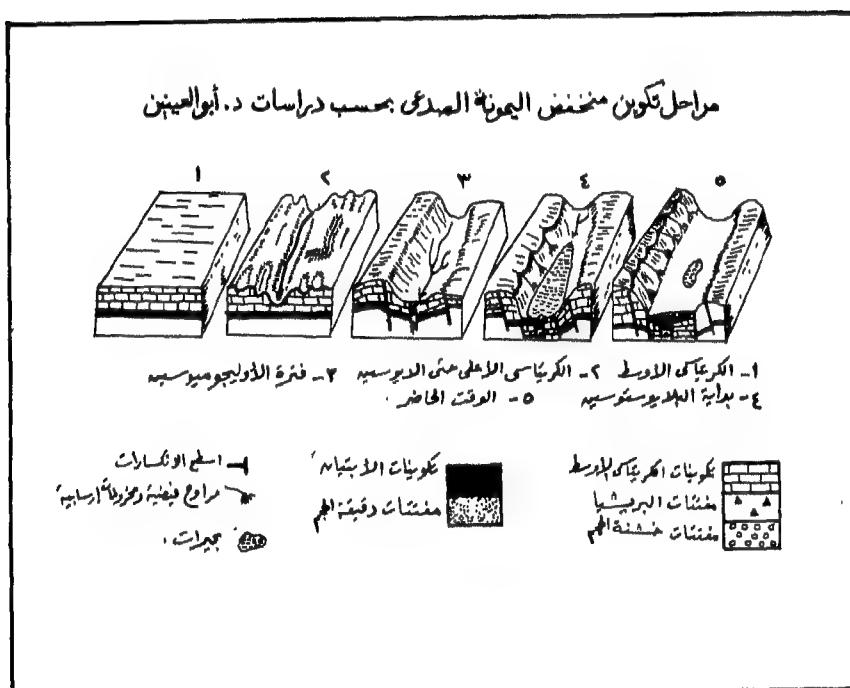 مراحل تكوين منخفض اليمونة الصدعى بحسب دراسات د. أبو العينين
١ ٢ ٣ ٤ ٥
١- الكريتاسى الأوسط ٢- الكريتاسى الأعلى حتى الايوسين ٣- فترة الأوليجوميوسين
٤- بداية البلايوستوسين ٥- الوقت الحاضر.
تكوينات الكريتاسى الأوسط
مفتتات البريشيا
مفتتات خشنة الحجم
تكوينات الأبتيان
مفتتات دقيقة الحجم
اسطح الانكسارات
مراوح فيضية ومخروطات ارسابية
بحيرات.